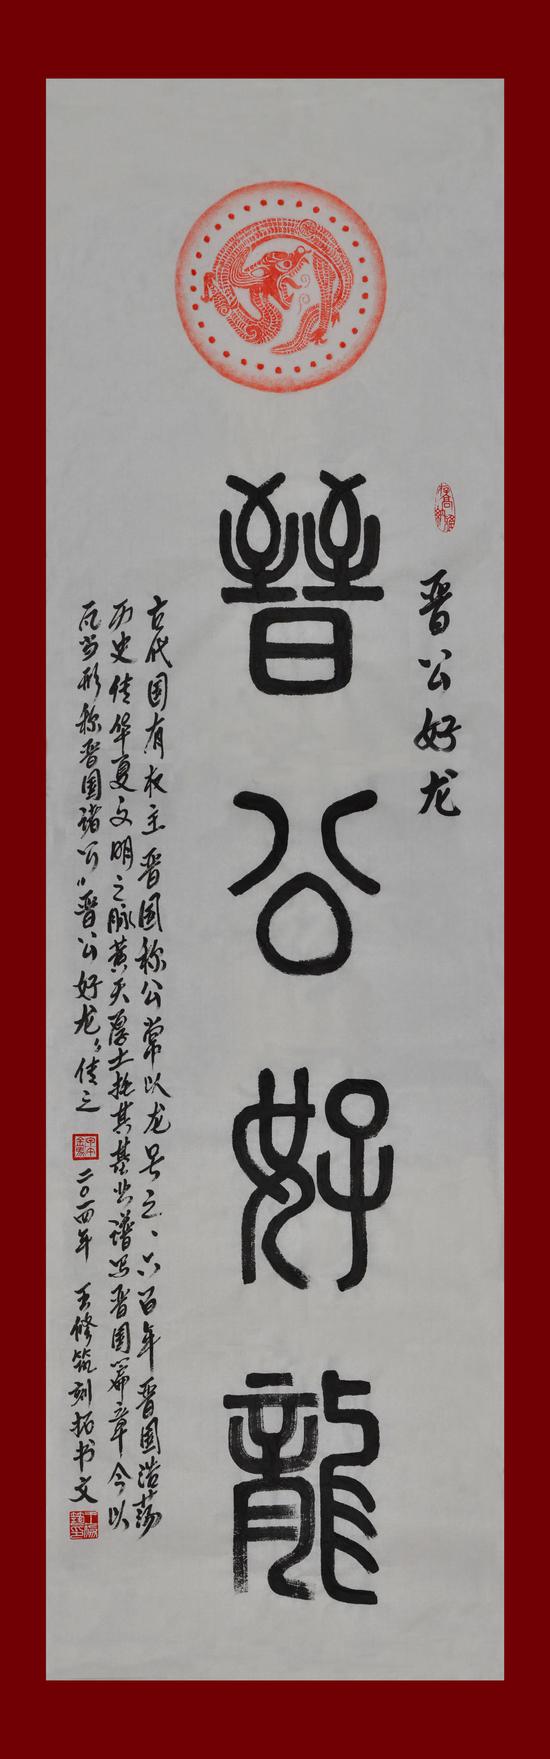 晋公好龙
晉公好龍
古代国有权主晋国称公常以龙号之、六百年晋国浩荡
历史传华夏文明之脉黄天厚土托其基业谱写晋国篇章今以
瓦当形称晋国诸公"晋公好龙"传之
二〇一四年 王修筑刻拓书文